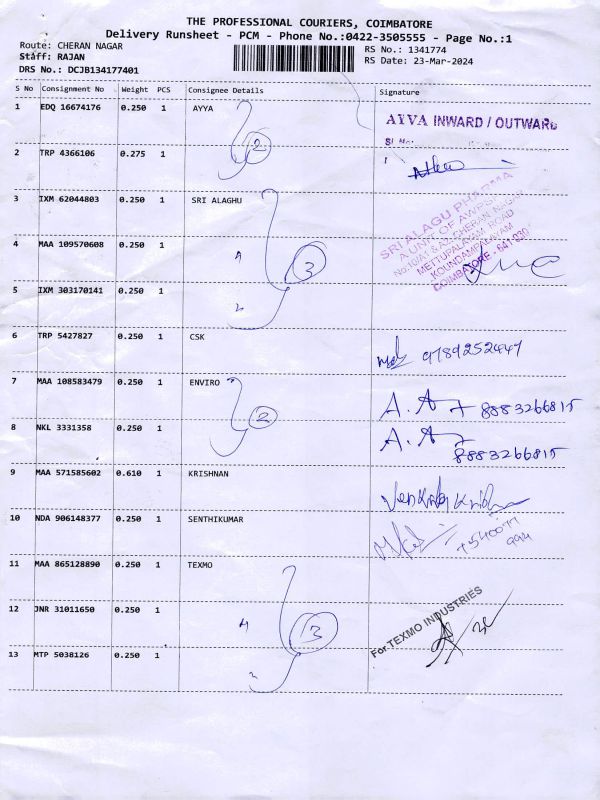 THE PROFESSIONAL COURIERS, COIMBATORE
Delivery Runsheet - PCM - Phone No.:0422-3505555 - Page No.:1
Route: CHERAN NAGAR
RS No.: 1341774
Staff: RAJAN
RS Date: 23-Mar-2024
DRS No.: DCJB134177401
S No Consignment No Weight PCS Consignee Details Signature
1 EDQ 16674176 0.250 1 AYYA
AYVA INWARD / OUTWARD
2
2 TRP 4366106 0.275 1
3 IXM 62044803 0.250 1 SRI ALAGHU
SRI ALAGU PHARMA
A UNIT OF AWPS
CHERAN NAGAR
METTUPALAYAM ROAD
KOUNDAMPALAYAM
COIMBATORE - 641 030
4 MAA 109570608 0.250 1
3
5 IXM 303170141 0.250 1
6 TRP 5427827 0.250 1 CSK
9789252447
7 MAA 108583479 0.250 1 ENVIRO
A. A 8883266815
2
8 NKL 3331358 0.250 1
A. A
8883266815
9 MAA 571585602 0.610 1 KRISHNAN
10 NDA 906148377 0.250 1 SENTHIKUMAR
7540077
994
11 MAA 865128890 0.250 1 TEXMO
For TEXMO INDUSTRIES
12 JNR 31011650 0.250 1
13
13 MTP 5038126 0.250 1